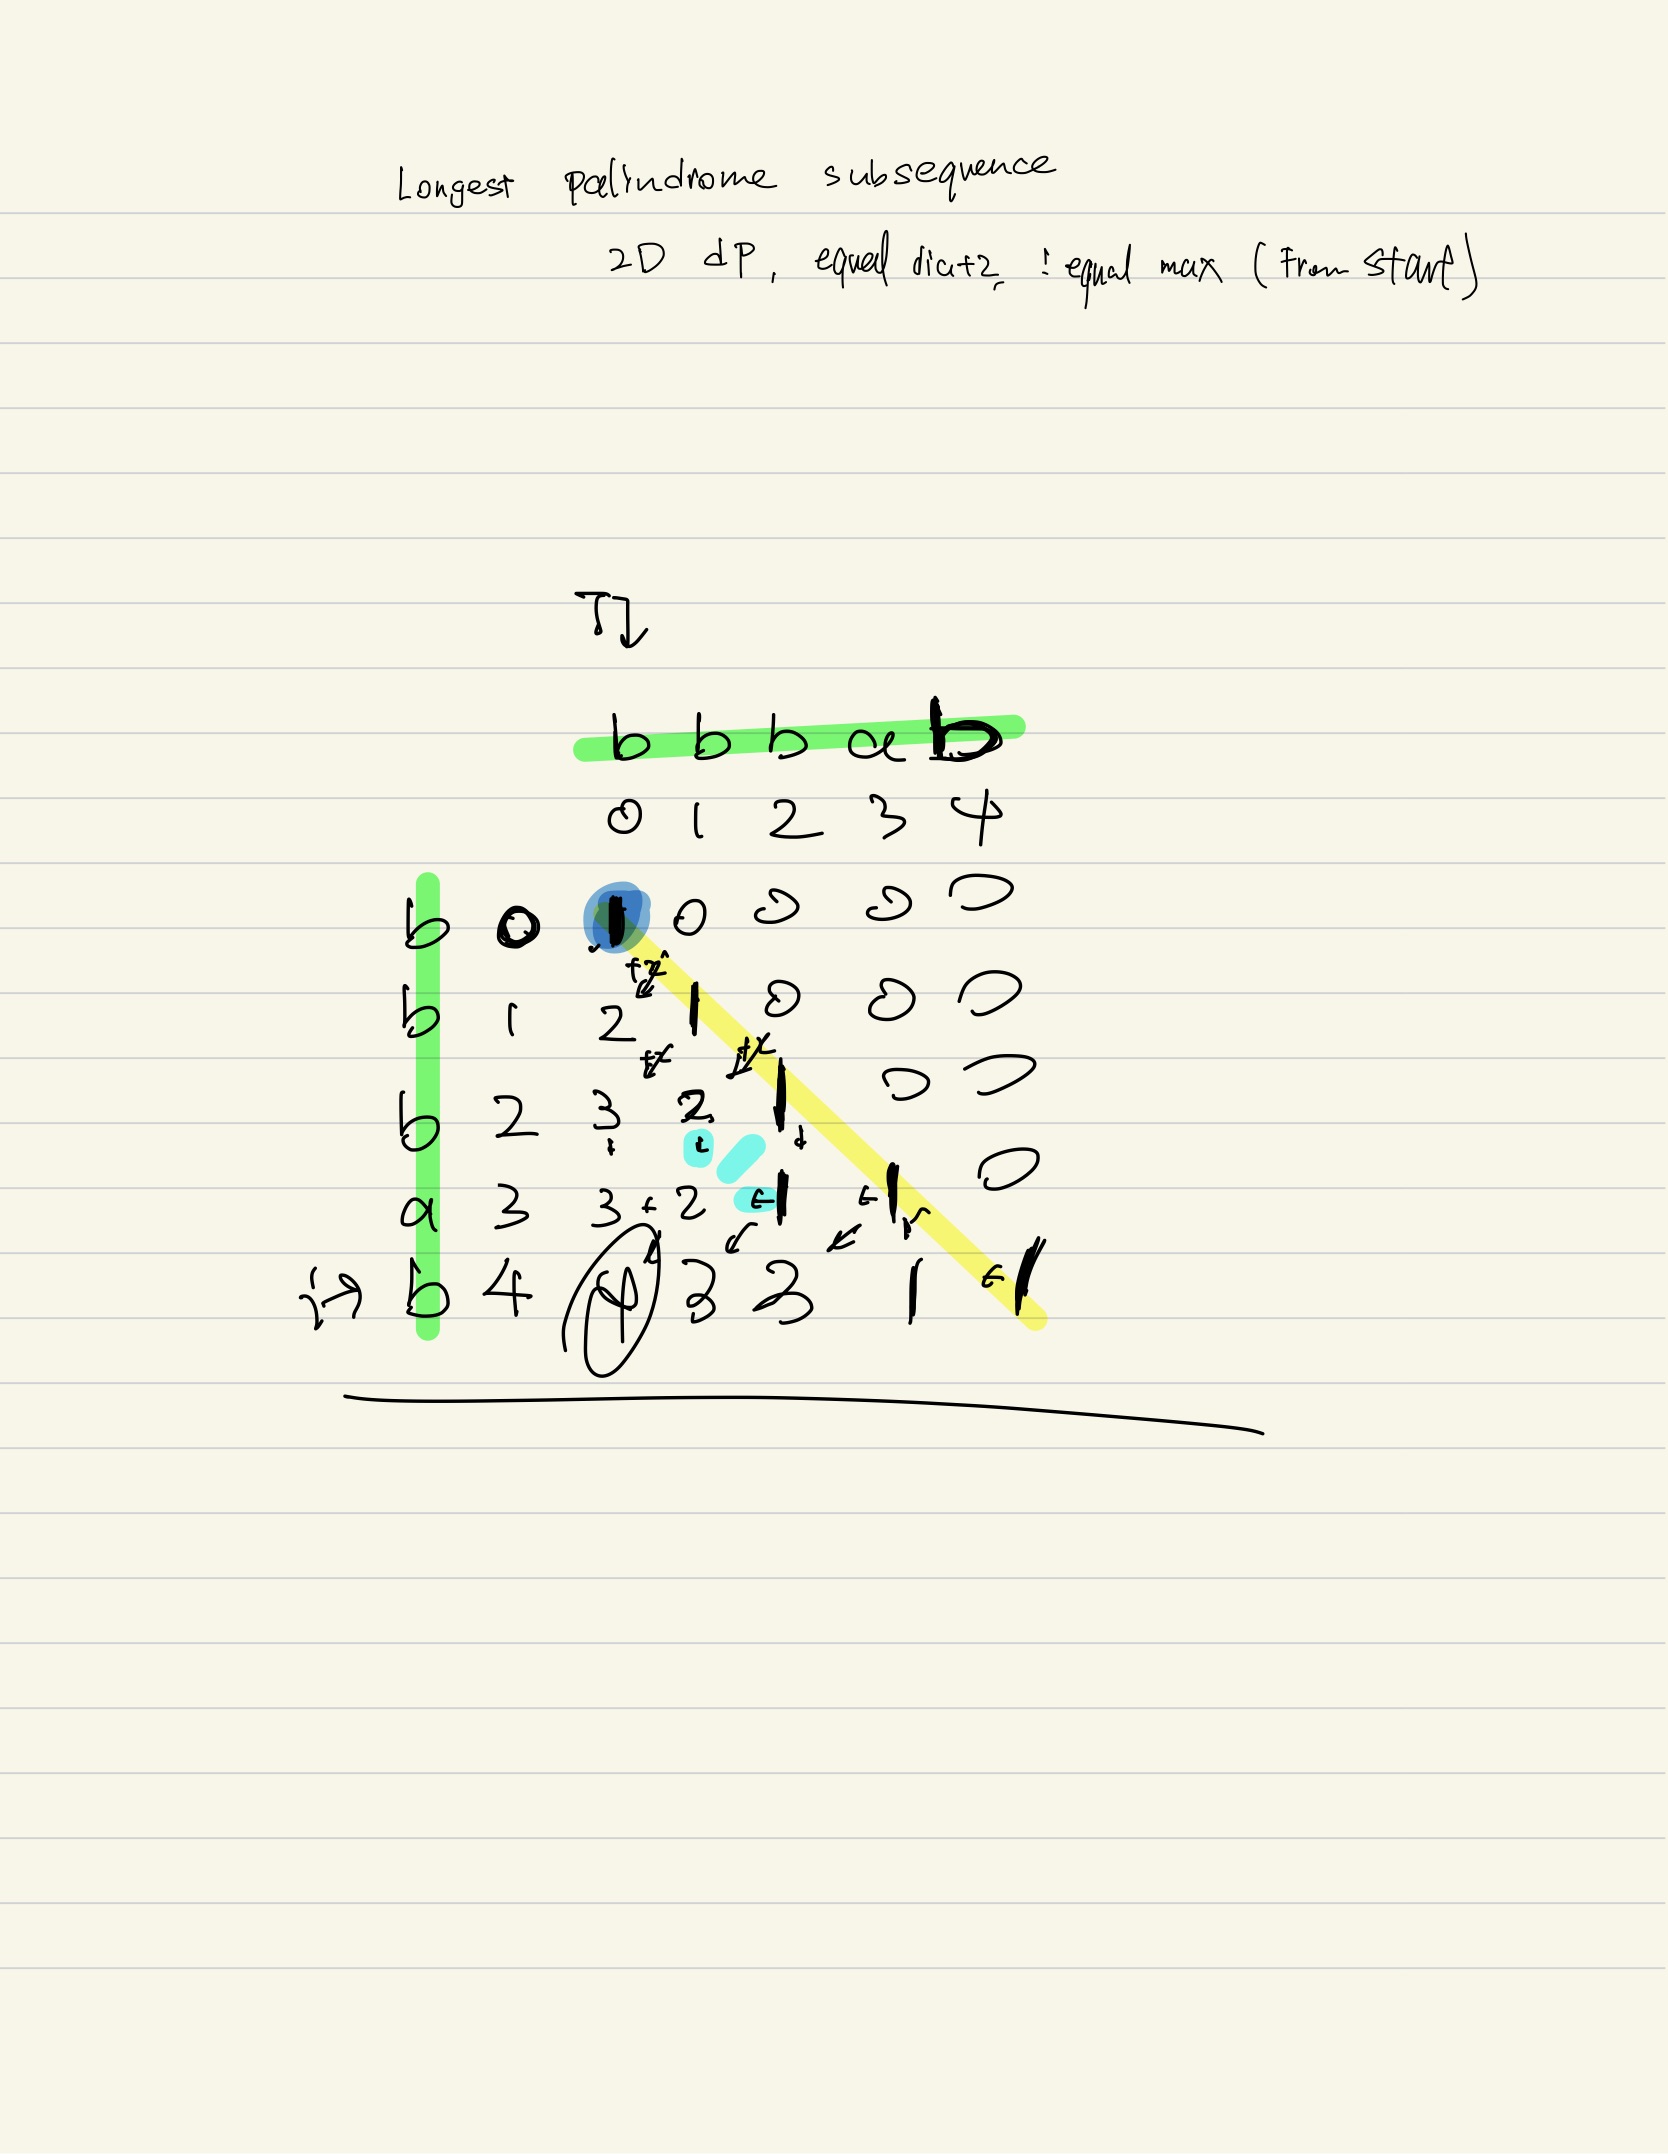 Longest palindrome subsequence
2D dP, equal dia+2, != equal max (From start)
b b b a b
0 1 2 3 4
b 0 1 0 0 0 0
+2
b 1 2 1 0 0 0
+2 +2
b 2 3 2 1 0 0
a 3 3 2 1 1 0
b 4 4 3 3 1 1